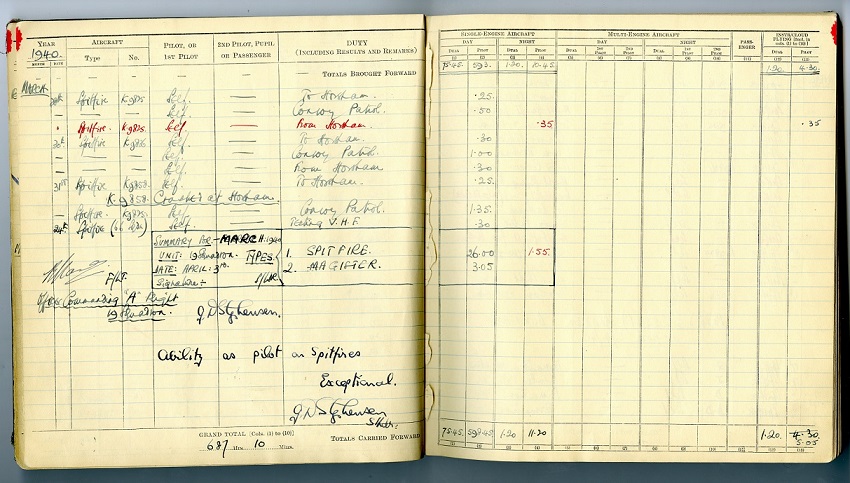 YEAR AIRCRAFT PILOT, OR 1ST PILOT 2ND PILOT, PUPIL OR PASSENGER DUTY (INCLUDING RESULTS AND REMARKS)
1940.
MONTH DATE Type No.
— — — — TOTALS BROUGHT FORWARD
MARCH
Spitfire K.9825 Self. — To Horsham.
— — Self. — Convoy Patrol.
Spitfire. K.9825. Self. — From Horsham.
Spitfire K9825 Self. — To Horsham.
— — Self. — Convoy Patrol.
— — Self. — From Horsham
31st Spitfire K9858. Self. — To Horsham.
K.9858. Crashed at Horsham.
— Spitfire. K9825. Self — Convoy Patrol.
24th Spitfire Self. — Testing V.H.F.
SUMMARY FOR - MARCH 1940
UNIT: 19 Squadron. TYPES
DATE: APRIL: 3rd.
Signature:-
1. SPITFIRE.
2. MAGISTER.
F/LT.
Officer Commanding "A" Flight
19 Squadron.
G D Stephenson.
Ability as pilot on Spitfires
Exceptional.
G D Stephenson
S/Ldr.
GRAND TOTAL [Cols. (1) to (10)]
687 Hrs. 10 Mins.
TOTALS CARRIED FORWARD
SINGLE-ENGINE AIRCRAFT MULTI-ENGINE AIRCRAFT PASS-ENGER INSTR/CLOUD FLYING [Incl. in cols. (1) to (10)]
DAY NIGHT DAY NIGHT
DUAL PILOT DUAL PILOT DUAL 1ST PILOT 2ND PILOT DUAL 1ST PILOT 2ND PILOT DUAL PILOT
(1) (2) (3) (4) (5) (6) (7) (8) (9) (10) (11) (12) (13)
75.45. 593. 1.20 10.45 1.20 4.30
.25.
.50
.35 .35
.30
1.00
.30
.25.
1.35.
.30
26.00 1.55.
3.05
75.45. 598.45 1.20 11.20 1.20. 4.30
5.05
(1) (2) (3) (4) (5) (6) (7) (8) (9) (10) (11) (12) (13)